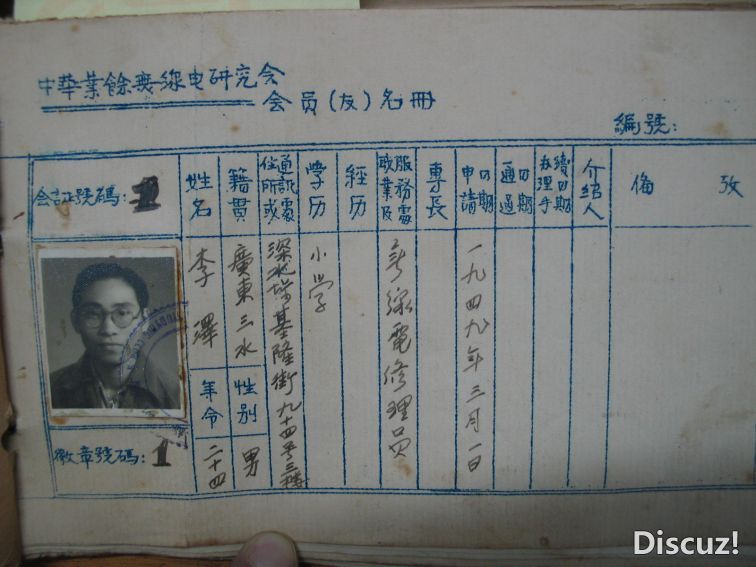 中華業餘無線电研究会
会员(友)名冊
編號:
会証號碼: 1
徽章號碼: 1
姓名
李澤
年令
二十四
籍貫
廣東三水
性别
男
通訊處或住所
深水埗基隆街九十四号三樓
学历
小学
經历
服務處及职業
無線電修理员
專長
申請日期
一九四九年三月一日
通过日期
办理手續日期
介绍人
偹攷
Discuz!